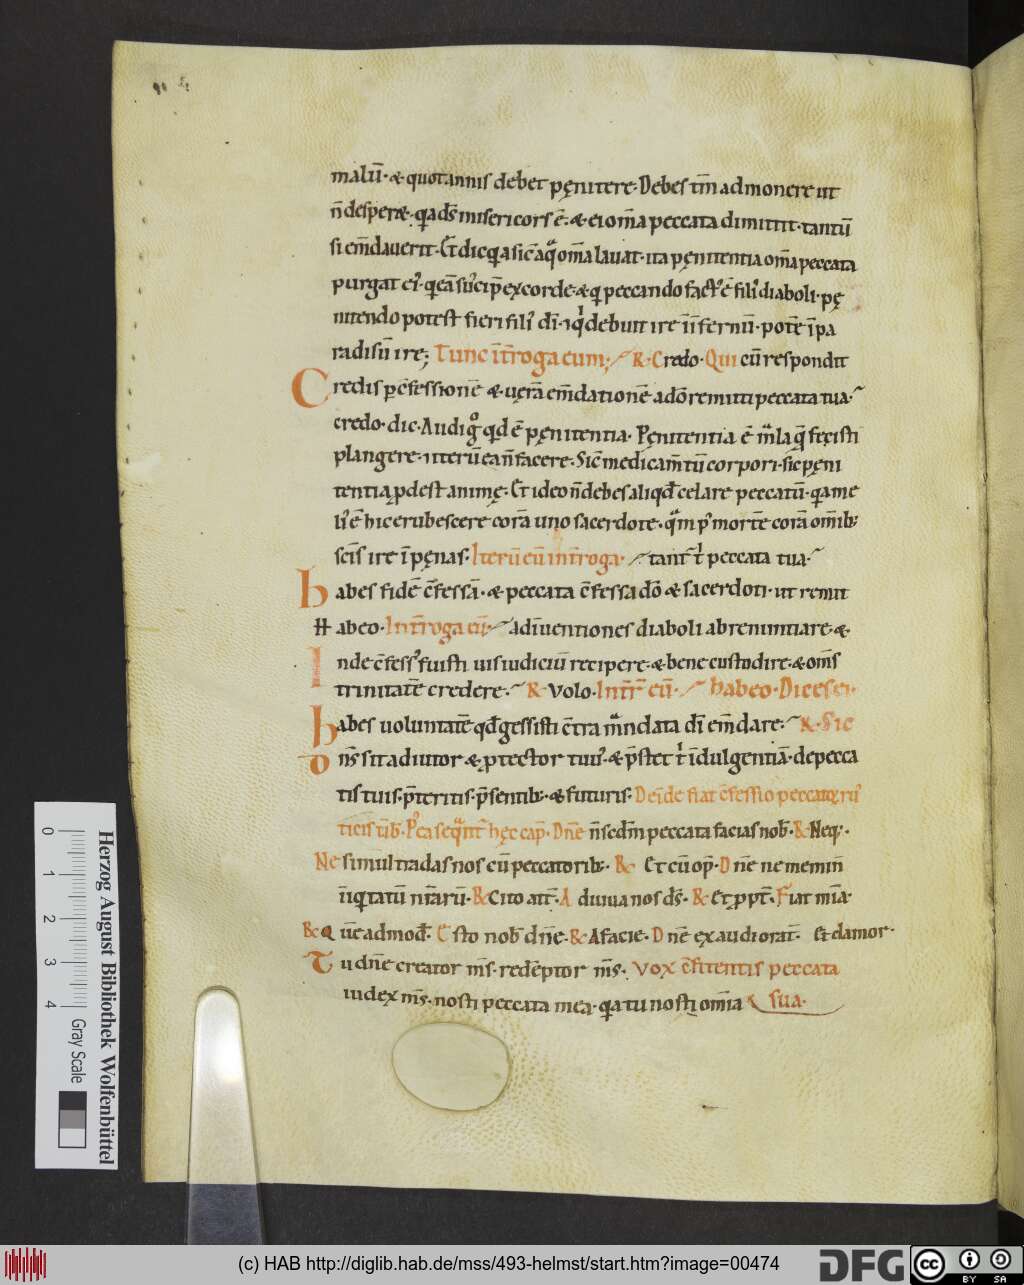 malū· & quotannis debet pęnitere· Debes tm̄ admonere ut
n̄ desperꝫ· qa ds̄ misericors ē· & ei om̄a peccata dimittit· tantū
si em̄dauerit· Et̄ dic qa sic̄ aq̄ om̄a lauat· ita pęnitentia om̄a peccata
purgat ei'· q eā suscip̄ ex corde· & q peccando fact' ē fili' diaboli· pę
nitendo potest fieri fili' dī· ⁊ q debuit ire ī īfernū· potē ī pa
radisū ire; Tunc īt̄roga eum; R̄· Credo· Qui cū respondit
Credis p c̄fessionē & uerā em̄dationē a dō remitti peccata tua·
credo· dic· Audi g° qd ē pęnitentia· Pęnitentia ē mala q̄ fecisti
plangere· ⁊ iterū ea n̄ facere· Sic̄ medicam̄tū corpori· sic pęni
tentia pdest animę· Et ideo n̄ debes aliqd̄ celare peccatū· qa me
li' ē hic erubescere corā uno sacerdote· qm p' mortē corā om̄ib;
sc̄is ire ī pęnas· Iterū eū int̄roga· tant̄ t' peccata tua·
habes fidē c̄fessā· & peccata c̄fessa dō & sacerdoti· ut remit
H abeo· Int̄roga eū· adiuentiones diaboli abrenuntiare· &
Inde c̄fess' fuisti uis iudiciū recipere· & bene custodire· & om̄s
trinitatē credere· R̄ Volo· Int̄r̄ eū· habeo· Dices ei·
habes uoluntatē qd̄ gessisti c̄tra mandata dī em̄dare· R̄· Sic
O m̄s sit adiutor & ptector tuus· & p̄stet t' īdulgentiā· de pecca
tis tuis· p̄teritis· p̄sentib; & futuris· Deīde fiat c̄fessio peccatorū
Pea seqnt' hęc cap̄· Dn̄e n̄ scdm peccata facias nob̄· R̄ Neq;·
Ne simul tradas nos cū peccatorib;· R̄ Et cū op̄· Dn̄e ne memin̄
īiqtatū nr̄arū· R̄ Cito ātt̄· A diuua nos ds̄· R̄ Et ppt̄· Fiat mīa·
R̄ Quēadmod̄· Esto nob̄ dn̄e· R̄ A facie· Dn̄e exaudi orat̄· Et clamor·
Tu dn̄e creator m̄s· redēptor m̄s· Vox c̄fitentis peccata
iudex m̄s· nosti peccata mea· qa tu nosti om̄ia sua·
0 1 2 3 4
Herzog August Bibliothek Wolfenbüttel
Gray Scale
(c) HAB http://diglib.hab.de/mss/493-helmst/start.htm?image=00474
DFG
cc BY SA